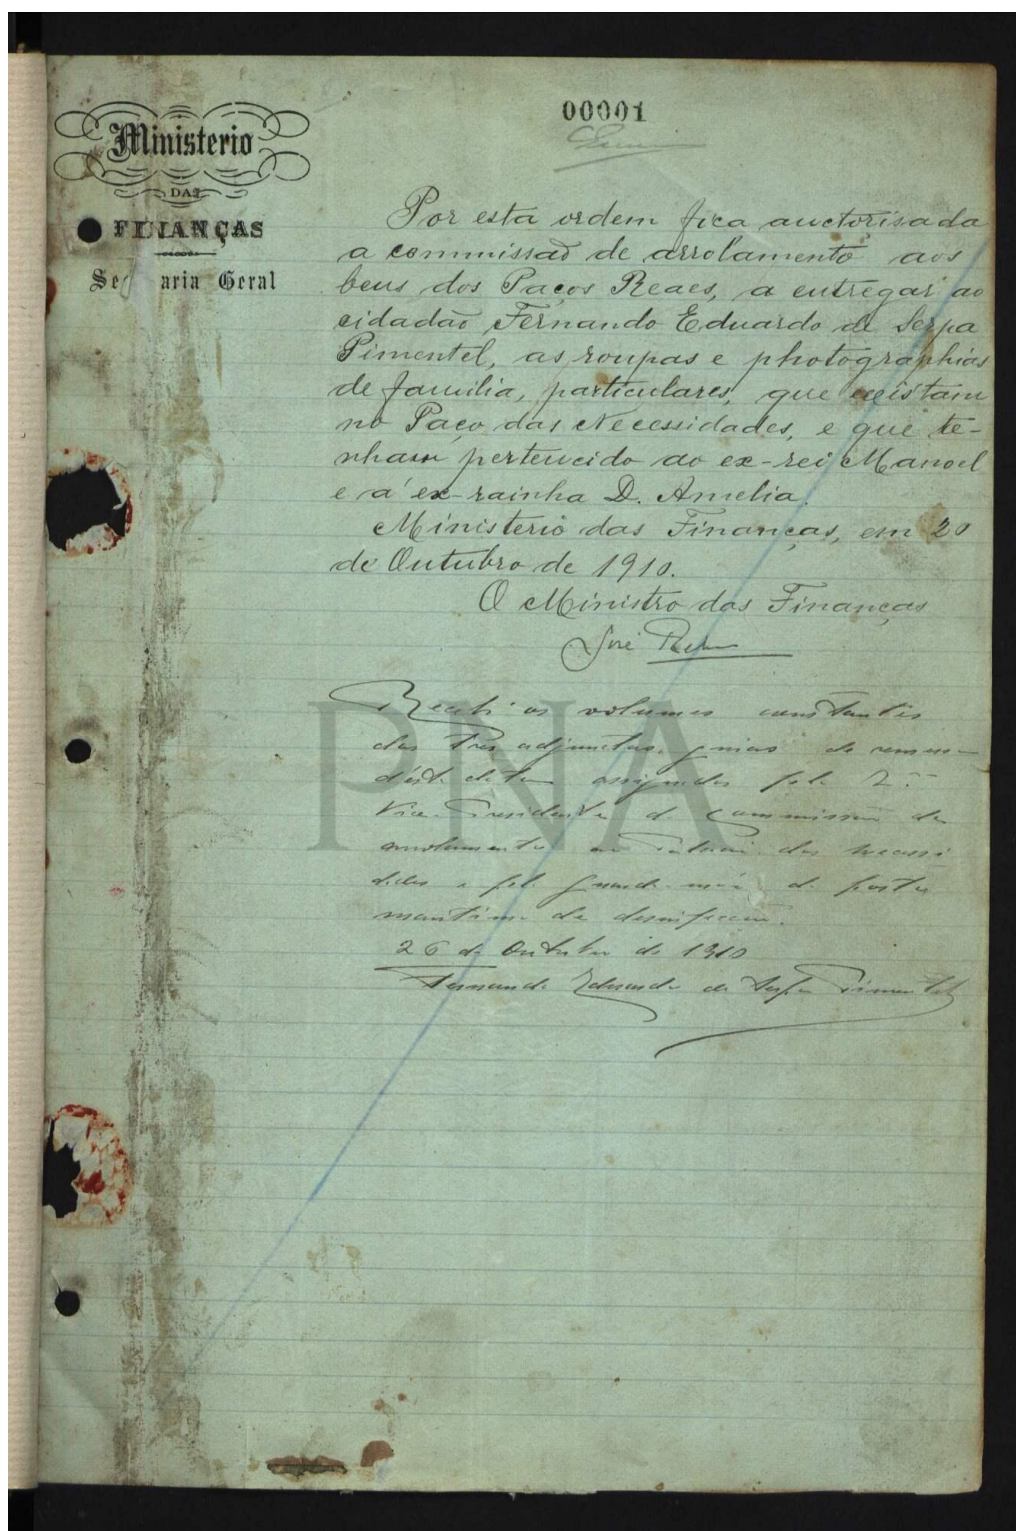 00001
Ministerio
DAS
FINANÇAS
Secretaria Geral
Por esta ordem fica auctorisada
a commissaõ de arrolamento aos
bens dos Paços Reaes, a entregar ao
cidadão Fernando Eduardo de Serpa
Pimentel, as roupas e photographias
de familia, particulares, que existam
no Paço das Necessidades, e que te-
nham pertencido ao ex-rei Manoel
e á ex-rainha D. Amelia.
Ministerio das Finanças, em 20
de Outubro de 1910.
O Ministro das Finanças
José Relvas
Recebi os volumes constantes
das tres adjuntas guias de remessa
d'esta data assignadas pelo 2º
Vice-Presidente da Commissão de
arrolamento ao Palacio das Necessi
dades e pelo guarda-mór do posto
maritimo de desinfecção.
26 de Outubro de 1910
Fernando Eduardo de Serpa Pimentel
PNA